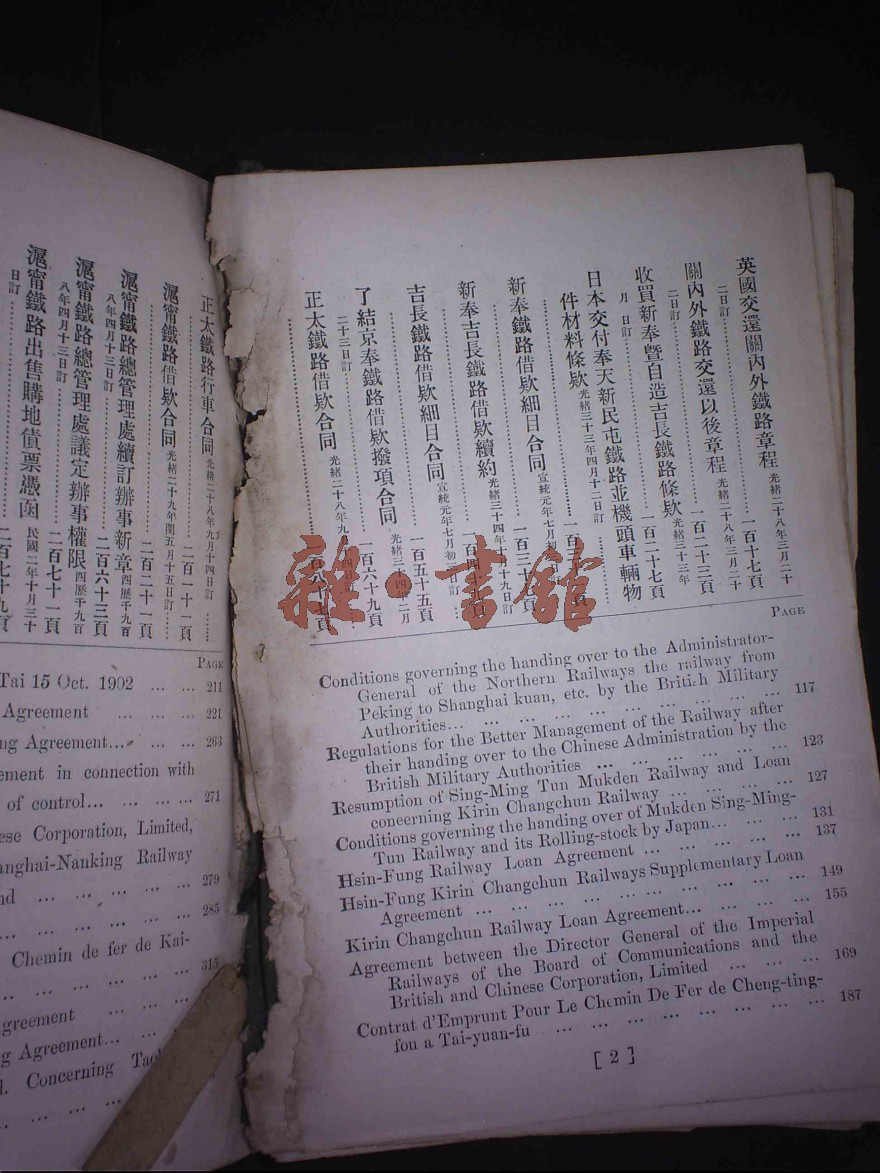 英國交還關內外鐵路章程 光緒二十八年三月二十二日訂 一百十七頁
關內外鐵路交還以後章程 光緒二十八年三月二十二日訂 一百二十三頁
收買新奉暨自造吉長鐵路條欵 光緒三十三年 月 日訂 一百二十七頁
日本交付奉天新民屯鐵路並機頭車輛物件材料條欵 光緒三十三年四月十二日訂
新奉鐵路借欵細目合同 宣統元年七月初 訂 一百三十 頁
新奉吉長鐵路借欵續約 光緒三十四年十 十九日訂 一百四十 頁
吉長鐵路借欵細目合同 宣統元年七月初 日訂 一百五十五頁
了結京奉鐵路借欵撥項合同 光緒三十四年二月二十三日訂 一百六十九頁
正太鐵路借欵合同 光緒二十八年九 訂 一百八十七頁
PAGE
Conditions governing the handing over to the Administrator-
General of the Northern Railways the railway from
Peking to Shanghai kuan, etc. by the British Military
Authorities... ... ... ... ... ... ... ... ... 117
Regulations for the Better Management of the Railway after
their handing over to the Chinese Administration by the
British Military Authorities ... ... ... ... ... 123
Resumption of Sing-Ming Tun Mukden Railway and Loan
concerning Kirin Changchun Railway ... ... ... ... 127
Conditions governing the handing over of Mukden Sing-Ming-
Tun Railway and its Rolling-stock by Japan... ... ... 131
Hsin-Fung Railway Loan Agreement ... ... ... ... ... 137
Hsin-Fung Kirin Changchun Railways Supplementary Loan
Agreement ... ... ... ... ... ... ... ... ... 149
Kirin Changchun Railway Loan Agreement... ... ... ... 155
Agreement between the Director General of the Imperial
Railways of the Board of Communications and the
British and Chinese Corporation, Limited ... ... ... 169
Contrat d'Emprunt Pour Le Chemin De Fer de Cheng-ting-
fou a Tai-yuan-fu ... ... ... ... ... ... ... ... 187
[ 2 ]
正太鐵路行車合同 光緒二十八年九月十四日訂 二百十一頁
滬甯鐵路借欵合同 光緒二十九年閏五月十五日訂 二百二十一頁
滬甯鐵路總管理處續訂辦事新章 西歷千九百八年四月十三日訂 二百六十三頁
滬甯鐵路總管理處議定辦事權限 西歷千九百八年四月十三日訂 二百七十一頁
滬甯鐵路出售購地債票憑函 民國二年十月三十日訂 二百七十九頁
PAGE
Tai 15 Oct. 1902 ... ... 211
Agreement ... ... ... 221
ng Agreement... ... ... 263
ement in connection with
of control... ... ... ... 271
ese Corporation, Limited,
anghai-Nanking Railway
nd ... ... ... ... ... 279
... ... ... ... ... 285
Chemin de fer de Kai-
... ... ... ... ... 315
greement ... ... ...
ng Agreement... ... ...
l. Concerning
雜·書館